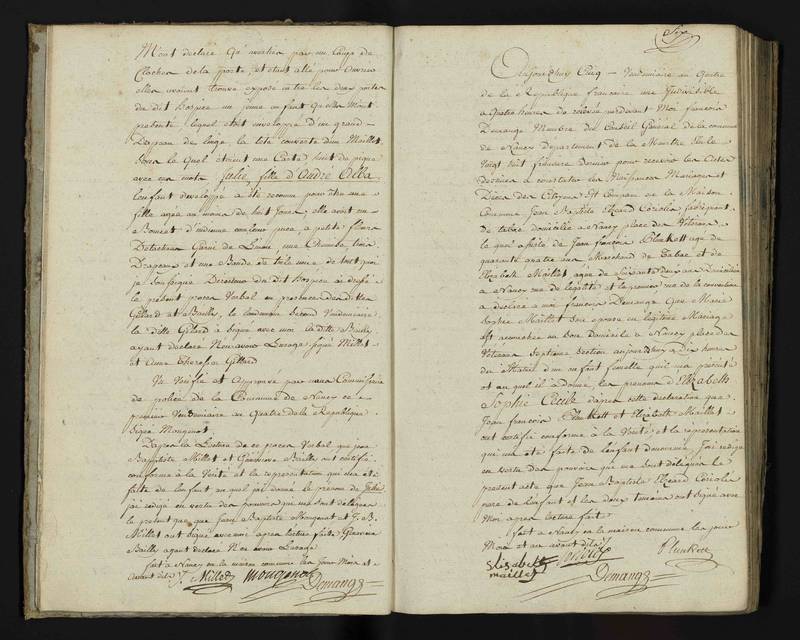 M'ont déclaré qu'averties par un coup de
Clochea de la porte, et étant allé pour ouvrir
elles avoient trouvé exposé entre les deux portes
du dit hospice un jeune enfant qu'elles m'ont
présenté, lequel étoit enveloppé d'un grand
Drapeau de linge, la tête couverte d'un Maillot
sous lequel étoient une Carte huit de pique
avec ces mots Julie, fille d'André
L'enfant développé a été reconnu pour être une
fille agée au moins de huit jours, elle avoit un
Bonnet d'indienne couleur puce, a petite fleurs
Détachées Garni de Linon, une Chemise, trois
Drapeaux et une Bande de toile unie de tout quoi
je Directeur du dit Hospice ai dressé
le présent procès Verbal en présence des dites
Gillard et Bailly, le
la ditte Gillard a signé avec moi la ditte Bailly
ayant déclaré Ne savoir L'usage signé Millet
et Anne Gillard
Vu Vérifié et Approuvé par nous Commissaire
de police de la Commune de Nancy ce
premier Vendemiaire an Quatre de la République
Signé Mougenot
D'après la Lecture de ce procès Verbal que Jean
Baptiste Millet et Genevieve Bailly ont certifié
conforme à la Vérité et la représentation qui m'a été
faite de l'enfant auquel j'ai donné le prénom de Julie
j'ai rédigé en vertu des pouvoirs qui me sont délégués
le présent que Jean Baptiste Mougenot et J. B.
Millet ont signé avec moi après lecture faite Genevieve
Bailly ayant déclaré N'en avoir L'usage
fait à Nancy en la maison commune les Jour Mois et
an avant dits J. Millet Mougenot Demange
Six
Aujourdhuy Cinq Vendemiaire an Quatre
de la République française une Indivisible
a Quatre heures de relevée pardevant Moi françois
Demange Membre du Conseil Général de la commune
de Nancy Departement de la Meurthe Elu le
Vingt huit frimaire Dernier pour recevoir les Actes
destinés a constater les Naissances Mariages et
Décès des Citoyens Est Comparu en la Maison
Commune Jean Baptiste Elzeard Coriolis fabriquant
de tabac domicilié a Nancy place des Vétérans
lequel assisté de Jean françois Plunkett agé de
quarante quatre ans Marchand de Tabac et de
Elizabeth Maillet agée de Soixante deux ans Domiciliés
a Nancy
a déclaré a moi françois Demange Que Marie
Sophie Maillet son epouse en légitime Mariage
est accouchée en son Domicile a Nancy place des
Vétérans Septieme Section aujourdhuy a Dix heures
du Matin d'un enfant femelle qu'il m'a présenté
et auquel il a donné les prénoms d'Elizabeth
Sophie d'après cette déclaration que
Jean françois Plunkett et Elizabeth Maillet
ont certifié conforme à la Vérité et la représentation
qui m'a été faite de l'enfant dénommé J'ai rédigé
en vertu des pouvoirs qui me sont délégués le
présent acte que Jean Baptiste Elzeard Coriolis
pere de l'enfant et les deux temoins ont signé avec
Moi après lecture faite
fait a Nancy en la maison commune les jour
Mois et an avant dits Coriolis Plunkett
Elisabeth
maillet Demange